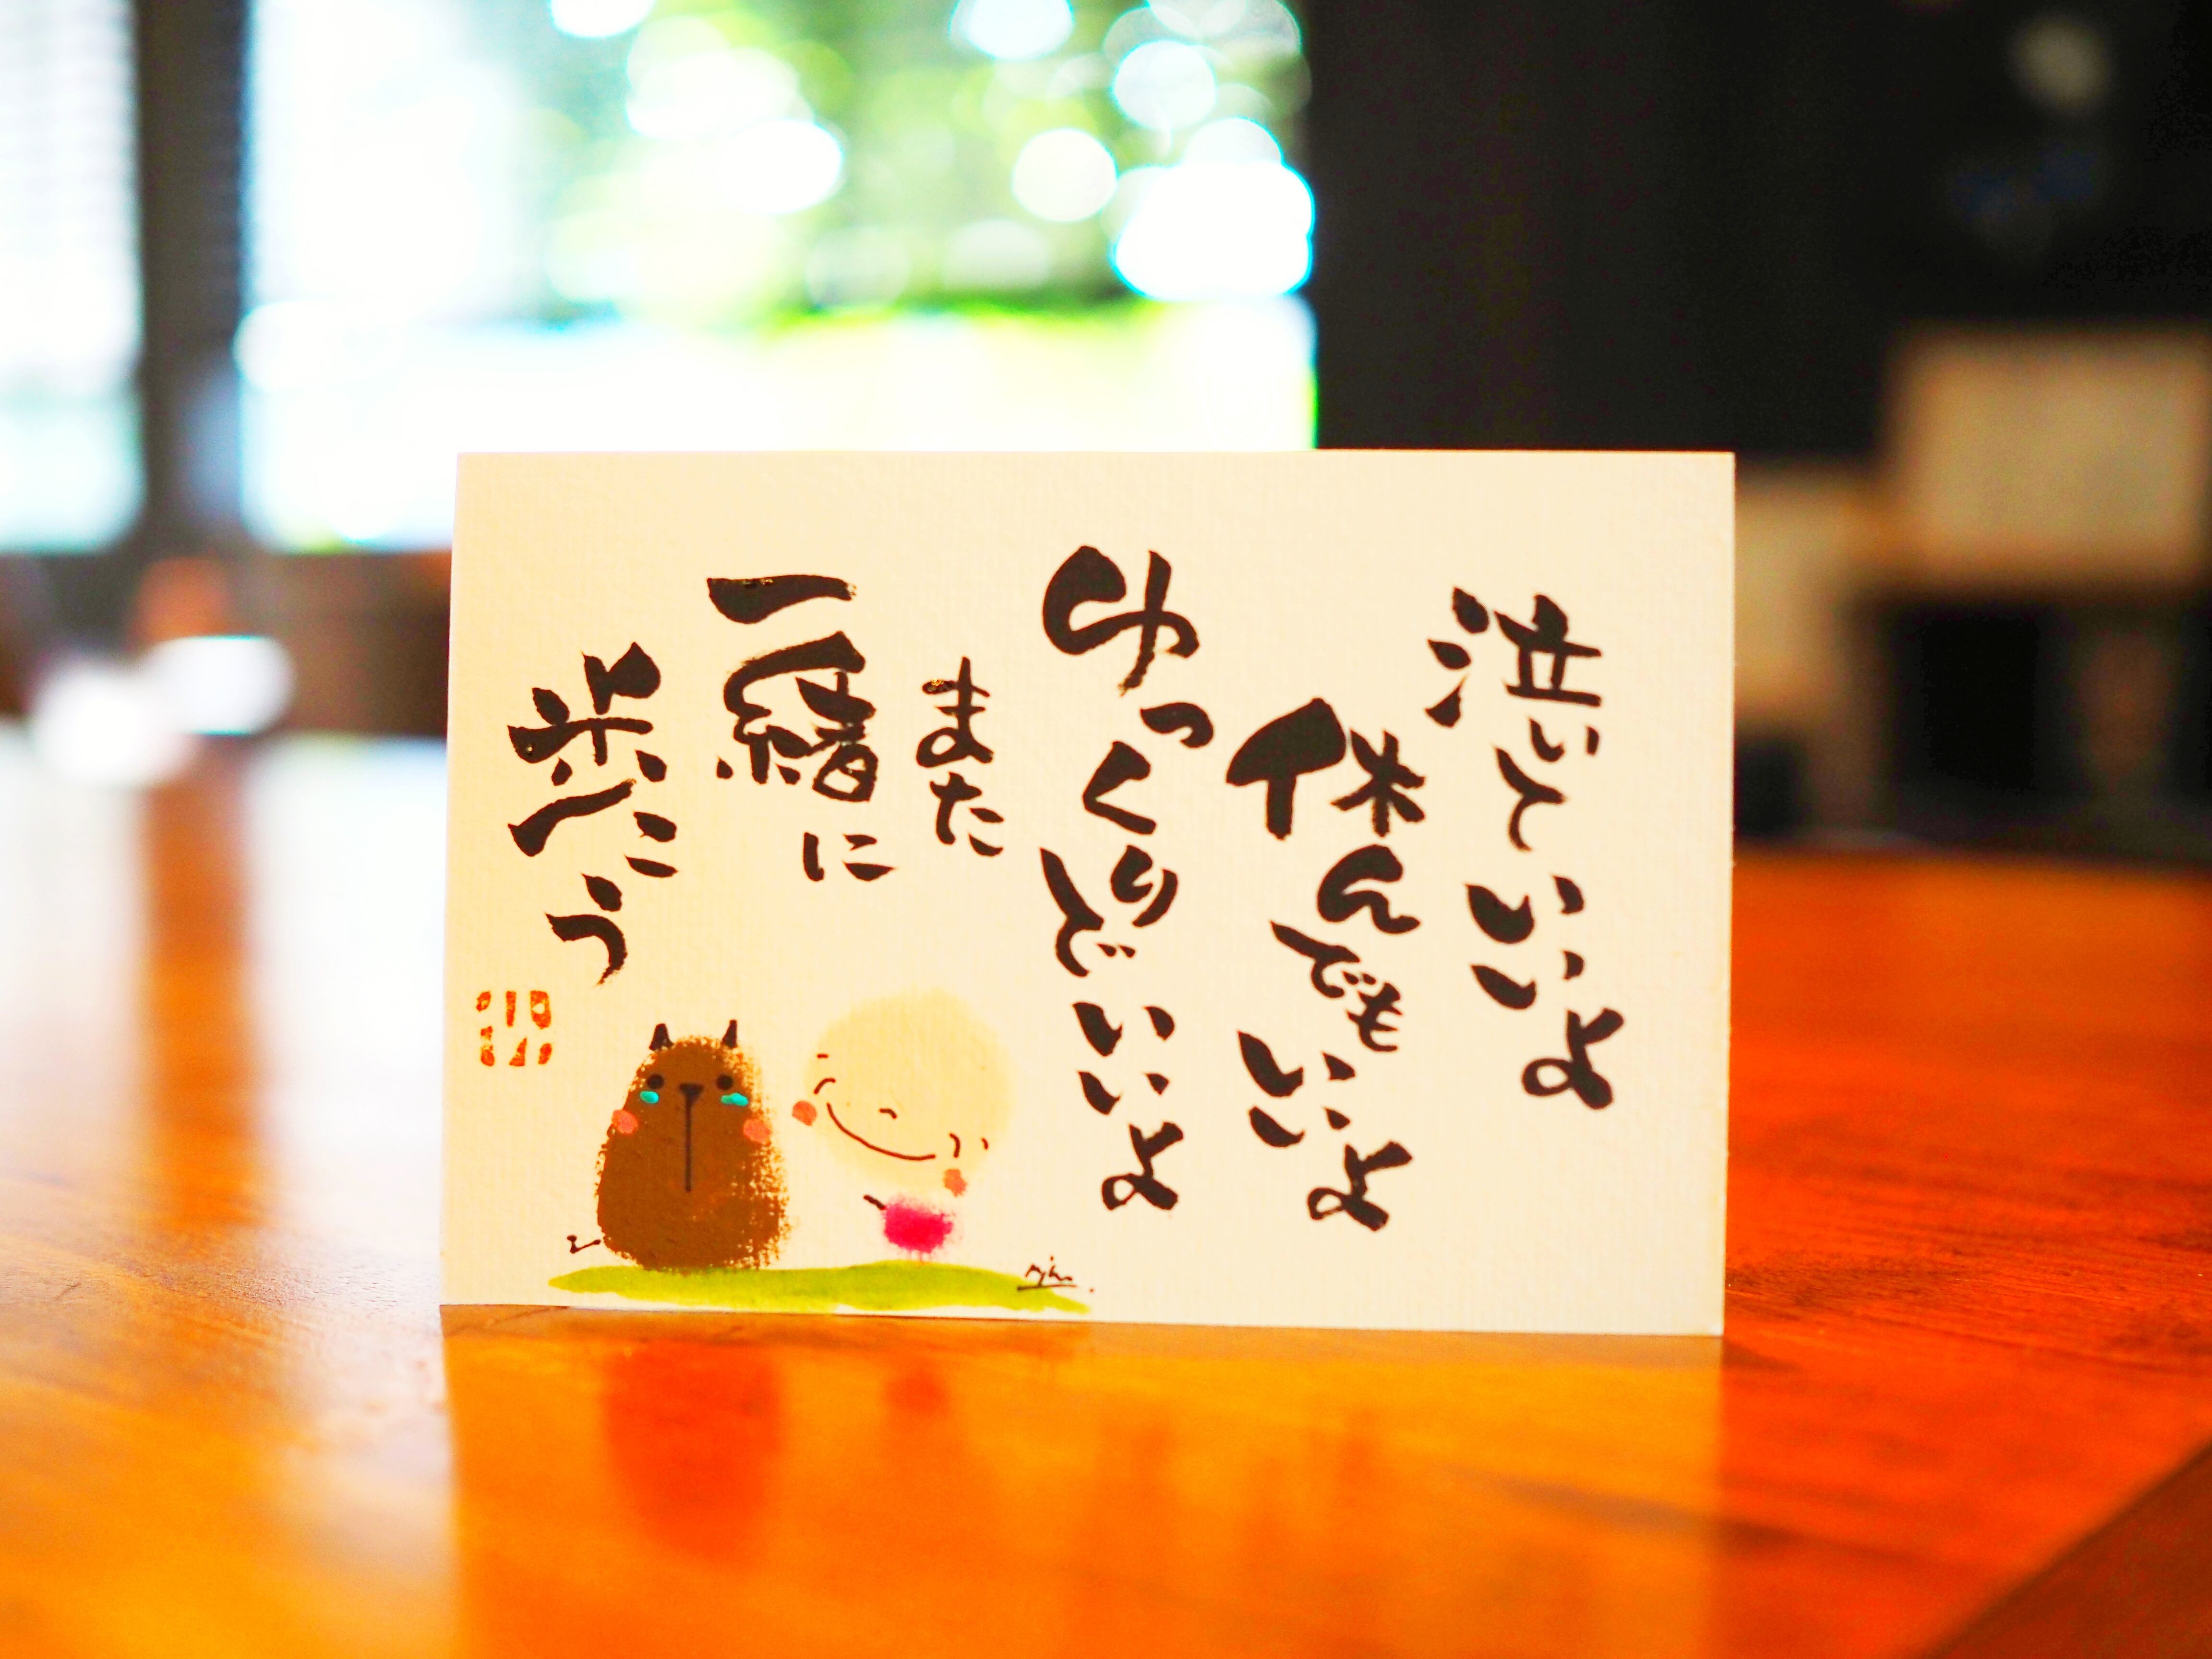 泣いていいよ
休んでもいいよ
ゆっくりでいいよ
また
一緒に
歩こう